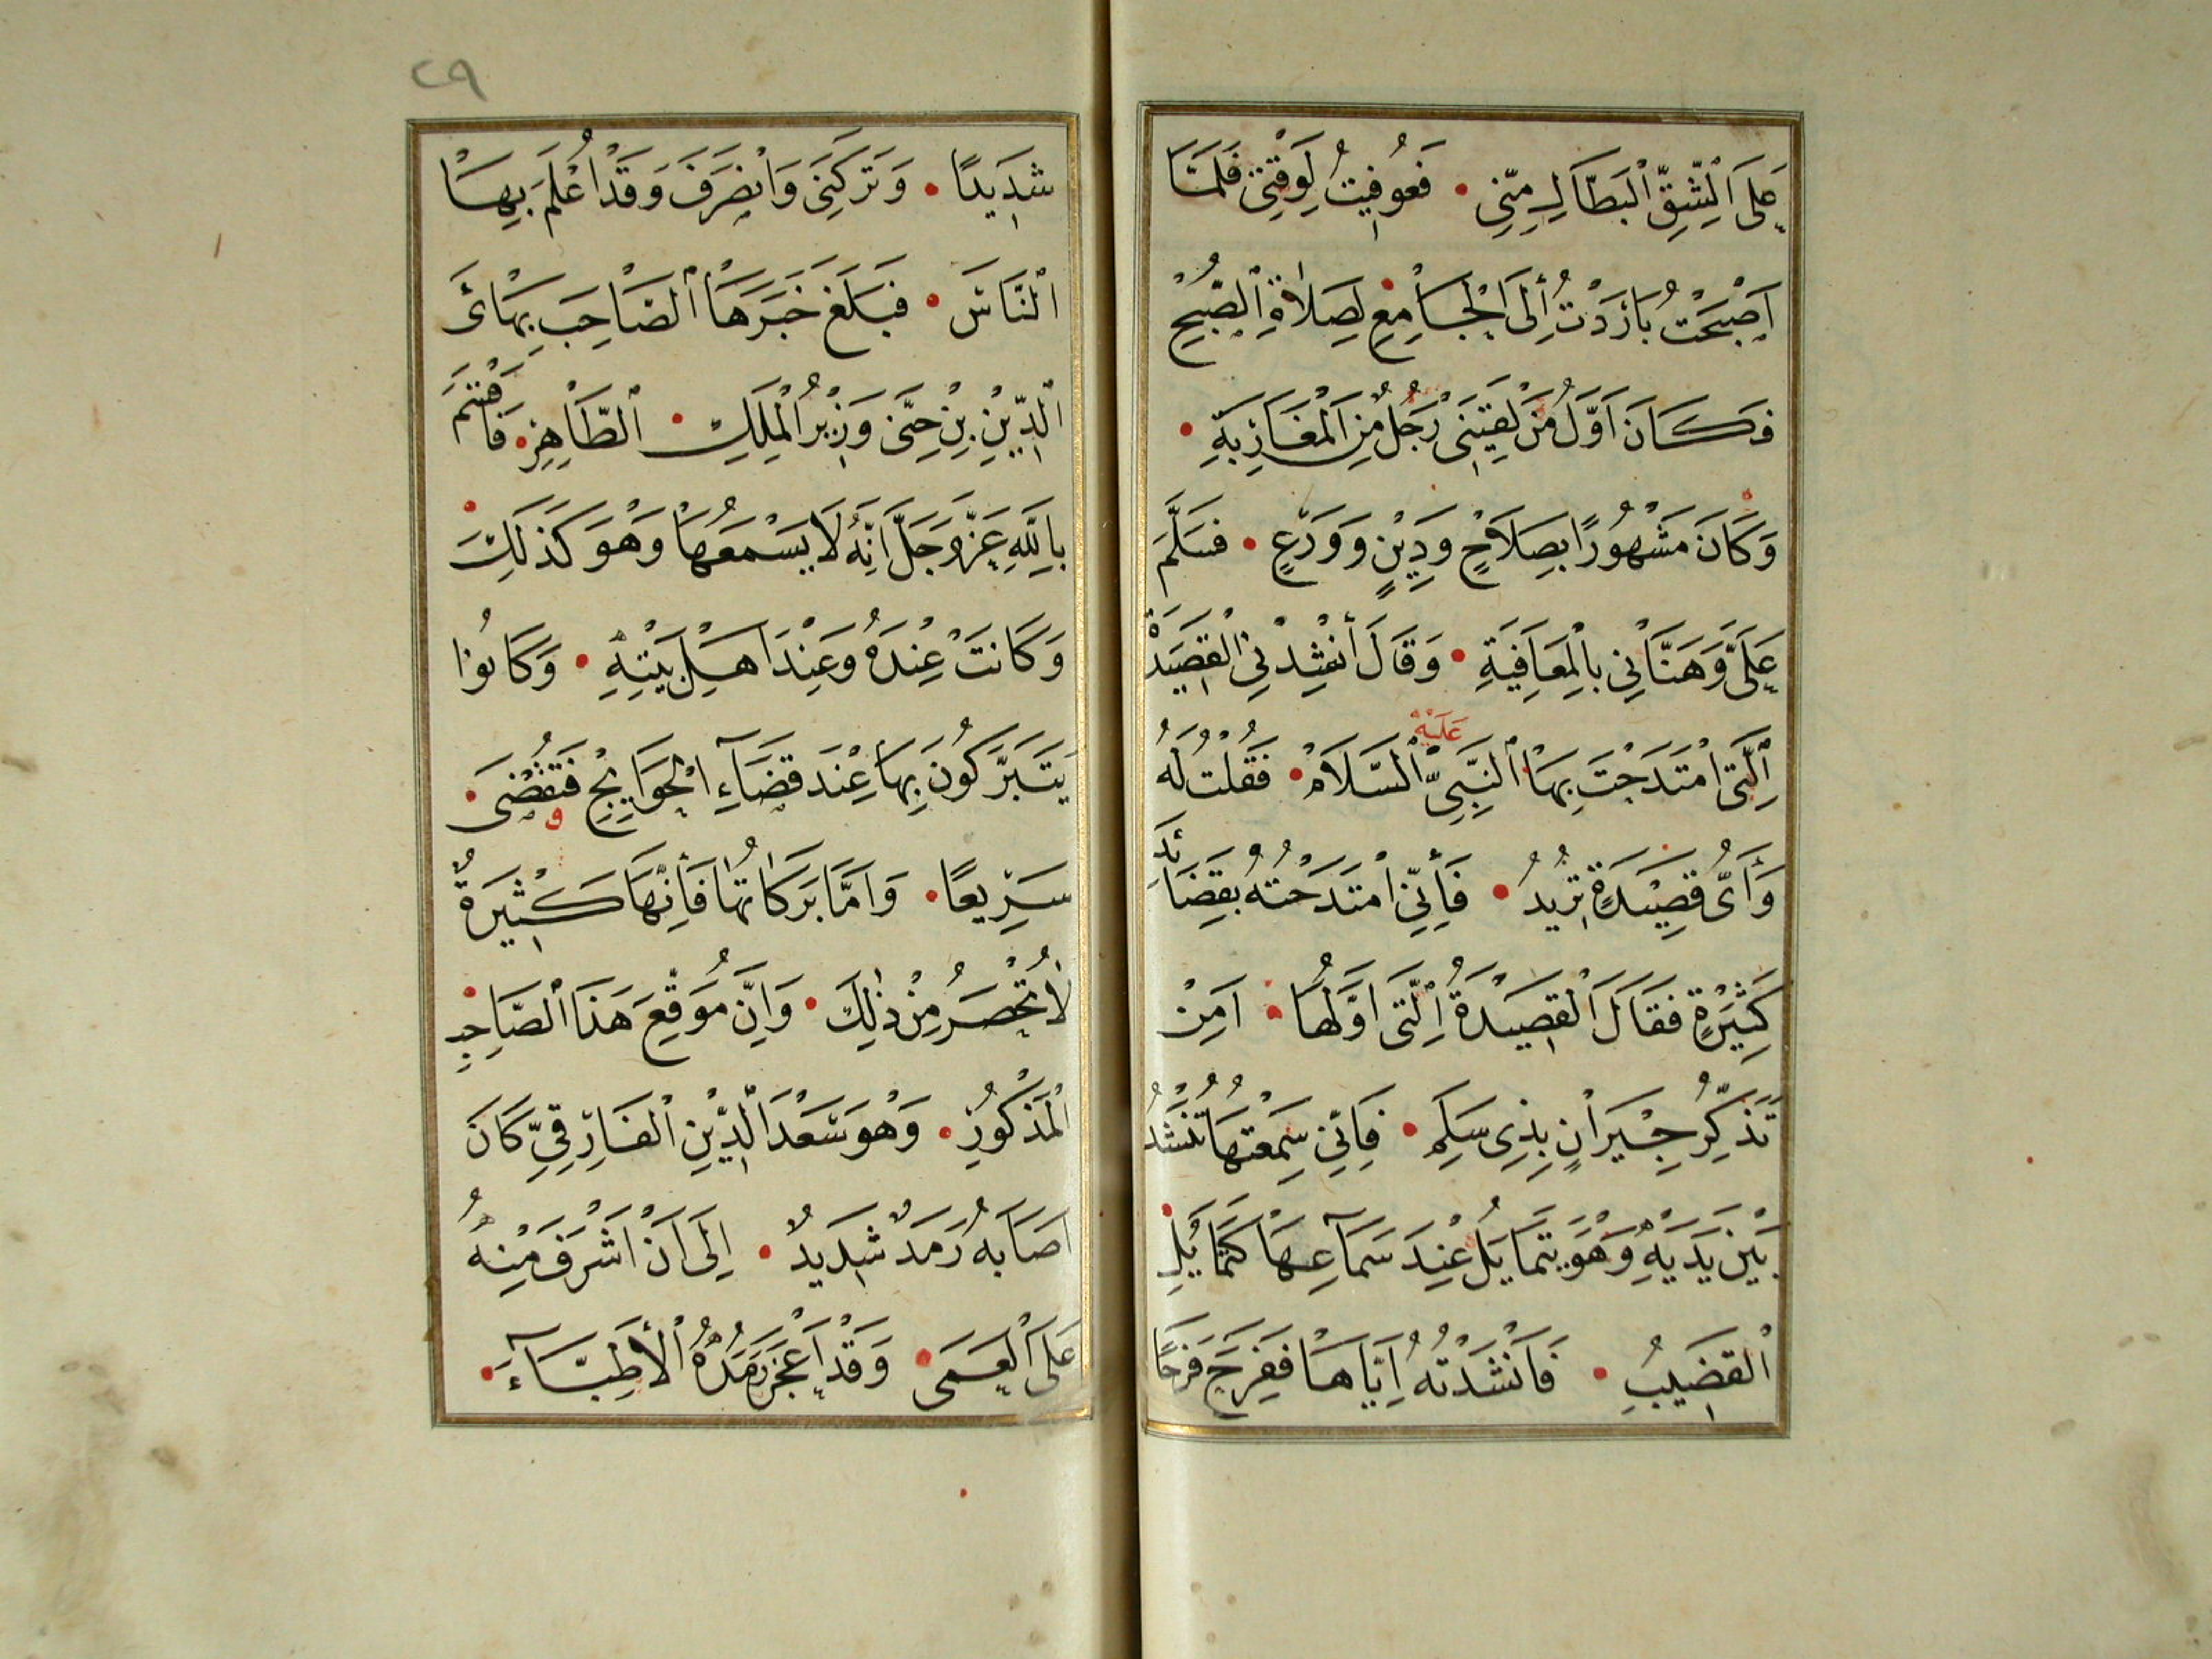 عَلَى ٱلشِّقِّ ٱلْبَطَّالِ مِنِّي • فَعُوفِيتُ لِوَقْتِي فَلَمَّا
اَصْبَحْتُ بَادَرْتُ إِلَى الْجَامِعِ لِصَلاٰةِ ٱلصُّبْحِ
فَكَانَ اَوَّلُ مَنْ لَقِيَنِي رَجُلٌ مِنَ الْمَغَارِبَةِ •
وَكَانَ مَشْهُورًا بِصَلَاحٍ وَدِيْنٍ وَوَرَعٍ • فَسَلَّمَ
عَلَيَّ وَهَنَّأَنِي بِالْمُعَافِيَةِ • وَقَالَ أَنْشِدْنِي الْقَصِيَدْةَ
اَلَّتِي امْتَدَحْتَ بِهَا ٱلنَّبِيَّ عَلَيْهِ ٱلسَّلَامْ • فَقُلْتُ لَهُ
وَأَيُّ قَصِيْدَةٍ تُرِيدُ • فَأِنِّي امْتَدَحْتُهُ بِقَصَائِدَ
كَثِيْرَةٍ فَقَالَ الْقَصِيْدَةُ اَلَّتِي اَوَّلُهَا • اَمِنْ
تَذَكُّرِ جِيْرَانٍ بِذِي سَلَمِ • فَاِنِّي سَمِعْتُهَا تُنْشَدُ
بَيْنَ يَدَيْهِ وَهُوَ يَتَمَايَلُ عِنْدَ سَمَاعِهَا كَتَمَايُلِ
ٱلْقَضِيبِ • فَاَنْشَدْتُهُ اِيَّاهَا فَفَرِحَ فَرَحًا
٢٩
شَدِيدًا • وَتَرَكَنِي وَانْصَرَفَ وَقَدْ اُعْلِمَ بِهَا
ٱلنَّاسَ • فَبَلَغَ خَبَرُهَا ٱلصَّاحِبَ بَهَائَ
ٱلدِّيْنِ بِنْ حِنَّى وَزِيْرُ الْمَلِكِ • ٱلطَّاهِرِ • فَاقْتَمَ
بِاللّٰهِ عَزَّ وَجَلَّ اَنَّهُ لَا يَسْمَعُهَا وَهُوَ كَذَلِكَ
وَكَانَتْ عِنْدَهُ وَعِنْدَ اَهْلِ بَيْتِهِ • وَكَانُوا
يَتَبَرَّكُونَ بِهَا عِنْدَ قَضَآءِ الْحَوَايِجِ فَتُقْضَى •
سَرِيعًا • وَاَمَّا بَرَكَاتُهَا فَأِنَّهَا كَثِيْرَةٌ
لَا تُحْصَرُ مِنْ ذٰلِكَ • وَاِنَّ مُوَقِّعَ هَذَا الصَّاحِبِ
الْمَذْكُورِ • وَهُوَ سَعْدَ الدِّيْنِ الْفَارِقِيِّ كَانَ
اَصَابَهُ رَمَدٌ شَدِيدٌ • اِلَى اَنْ اَشْرَفَ مِنْهُ
عَلَى الْعَمَى • وَقَدْ اَعْجَزَ رَمَدُهُ ٱلْأَطِبَّآءَ •